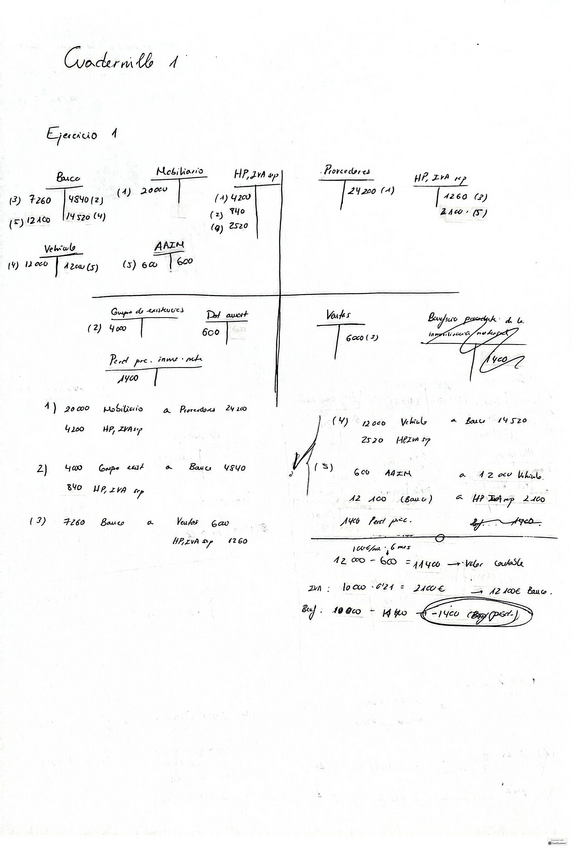 Cuadernillo 1
Ejercicio 1
Banco
(3) 7260 4840 (2)
(5) 12100 14520 (4)
Mobiliario
(1) 20000
HP, IVA sp
(1) 4200
(2) 840
(4) 2520
Proveedores
24200 (1)
HP, IVA rep
1260 (3)
2100 (5)
Vehículo
(4) 12000 12000 (5)
AAIM
(5) 600 600
(2) 4000
Dot amort
600
Ventas
6000 (3)
1400
Perd proc. inmov. mat
1400
1) 20000 Mobiliario a Proveedores 24200
4200 HP, IVA sp
2) 4000 a Banco 4840
840 HP, IVA sp
(3) 7260 Banco a Ventas 6000
HP, IVA rp 1260
(4) 12000 Vehículo a Banco 14520
2520 HP IVA sp
(5) 600 AAIM a 12000 Vehículo
12 100 (Banco) a HP IVA rp 2100
1400 Perd proc.
12 000 - 600 = 11400 → Valor contable
IVA: 10000 · 0'21 = 2100€ → 12100€ Banco.
Bnf: 10000 - -1400